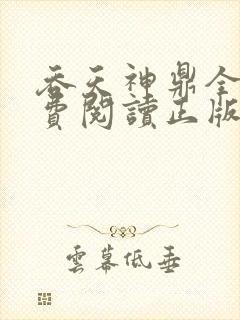 吞天神鼎全
費閱讀正版
雲幕低垂